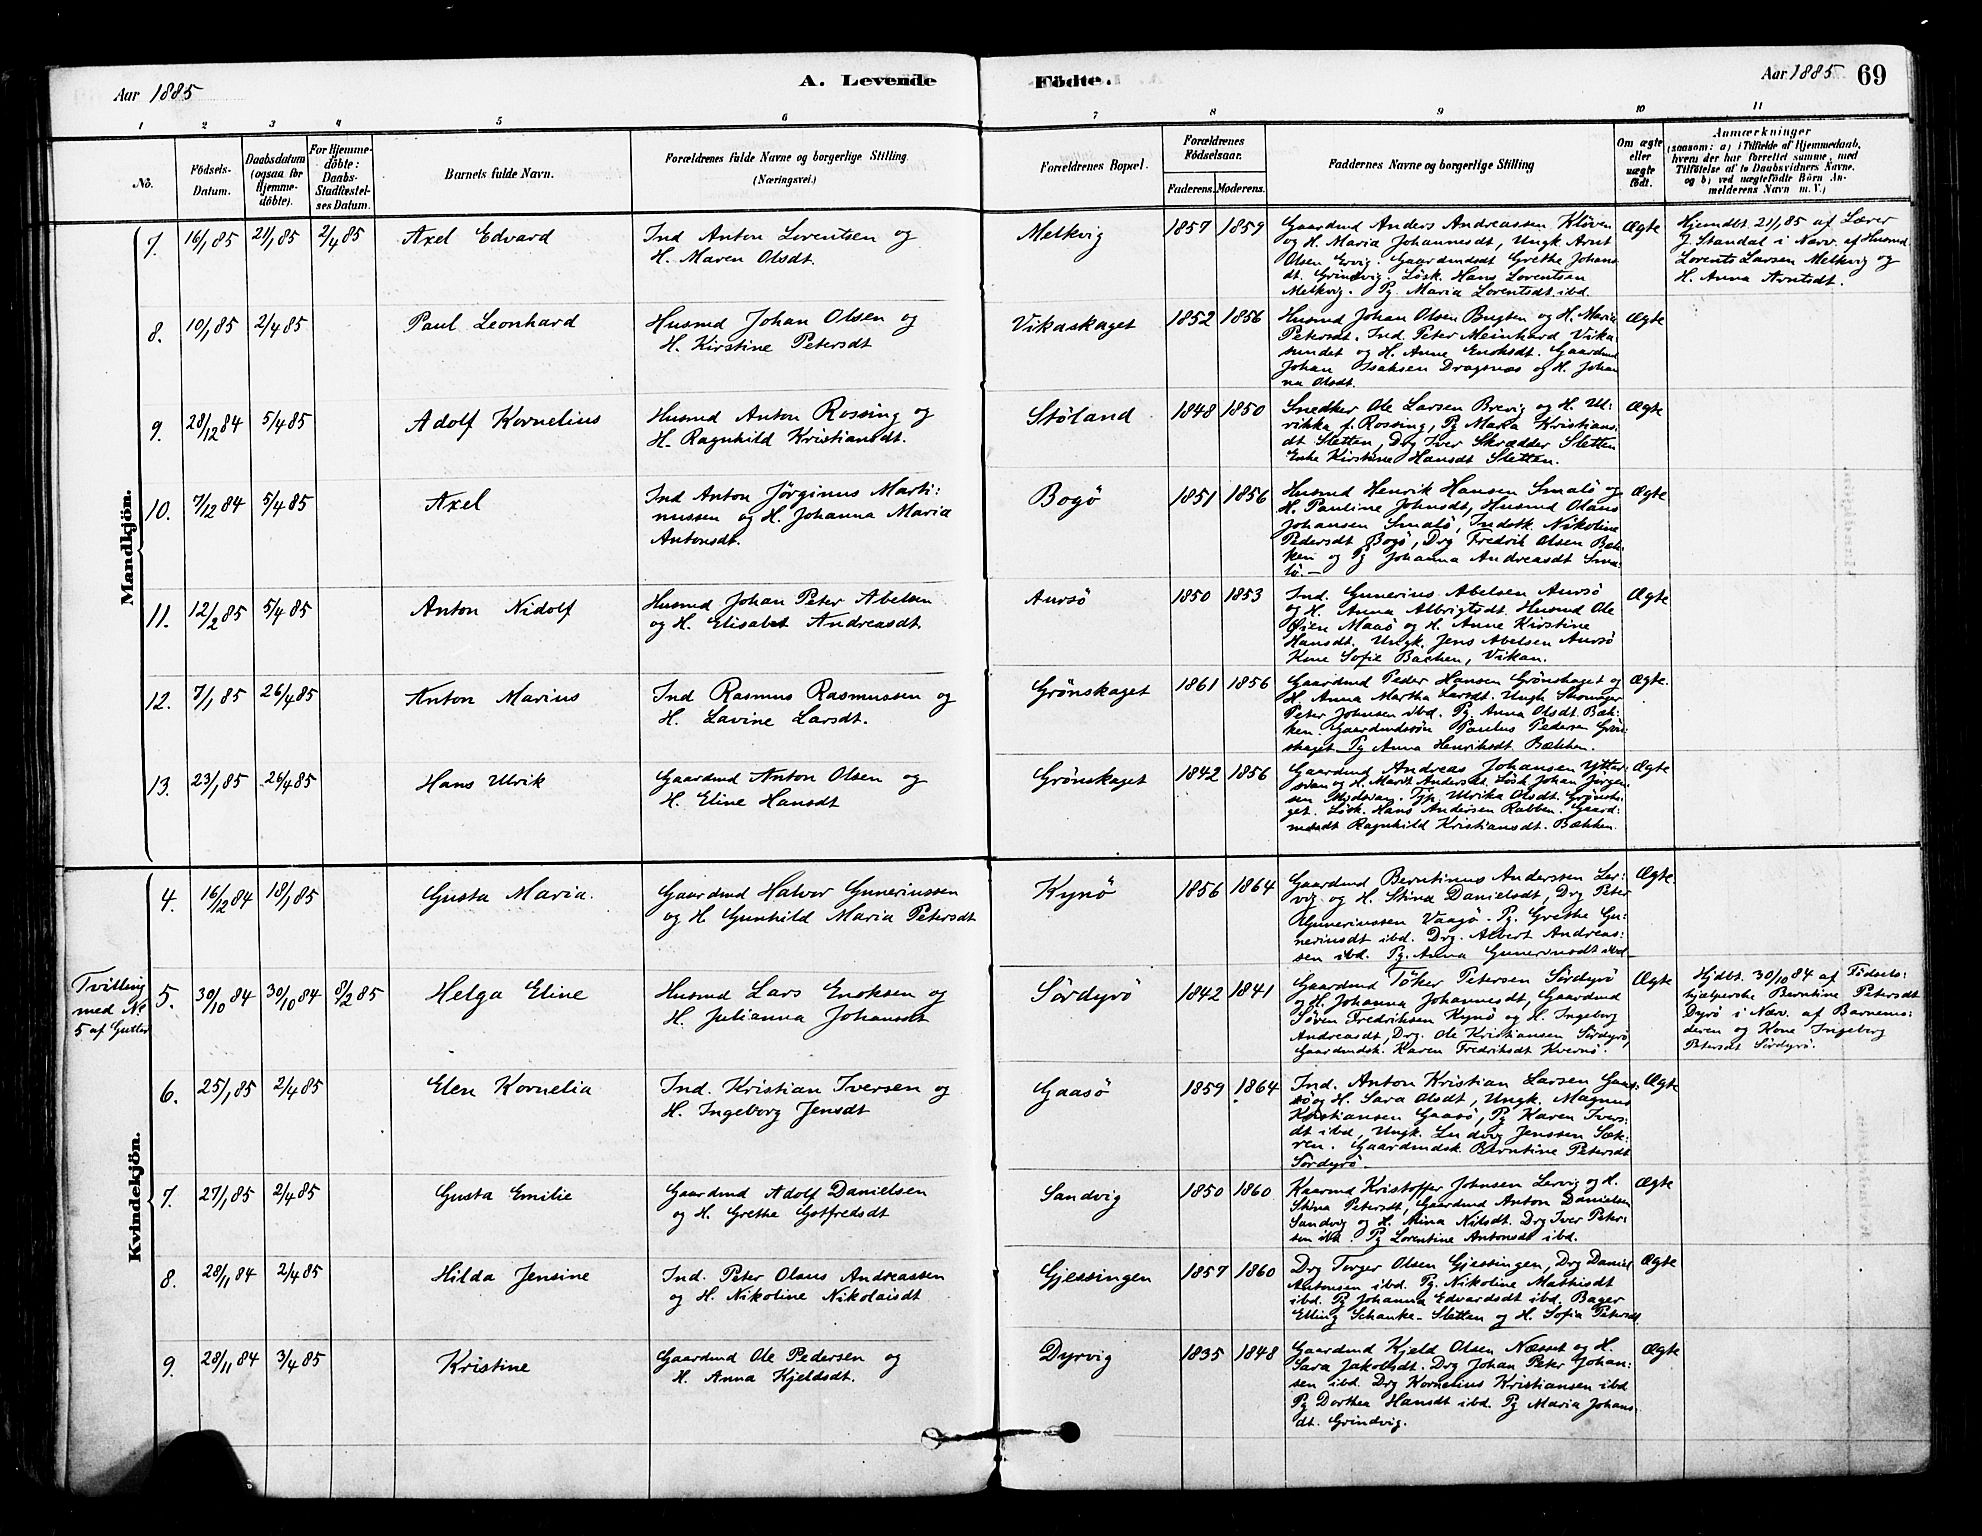 Aar 1885
A. Levende
Födte.
Aar 1885
69
1 2 3 4 5 6 7 8 9 10 11
No.
Födsels-
Datum.
Daabsdatum
(ogsaa for
Hjemme-
döbte).
For Hjemme-
döbte:
Daabs-
Stadfæstel-
ses Datum.
Barnets fulde Navn.
Forældrenes fulde Navne og borgerlige Stilling
(Næringsvei.)
Forældrenes Bopæl.
Forældrenes
Födselsaar.
Faderens. Moderens.
Faddernes Navne og borgerlige Stilling
Om ægte
eller
uægte
födt.
Anmærkninger
(saasom: a) i Tilfælde af Hjemmedaab,
hvem der har forrettet samme, med
Tilföielse af to Daabsvidners Navne,
og b) ved uægtefödte Börn An-
melderens Navn m. V.)
Mandkjön.
7. 16/1 85 21/1 85 2/4 85
Axel Edvard
Ind Anton Lorentsen og
H. Maren Olsdt.
Melkvig
1857 1859
Gaardmd Anders Andreassen Kløven
og H. Maria Johannesdt, Ungk Arnt
Olsen Ervig. Gaardmdsdt Grethe Johans
dt. Grindvig. Løsk. Hans Lorentsen
Melkvig. Pg. Maria Lorentsdt ibd.
Ægte
Hjemdbt. 21/1 85 af Lærer
J. Standal i Nærv. af Husmd
Lorents Larsen Melkvig og
H. Anna Arntsdt.
8. 10/1 85 2/4 85
Paul Leonhard
Husmd Johan Olsen og
H. Kirstine Petersdt
Vikaskaget
1852 1856
Husmd Johan Olsen Bugten og H. Maria
Petersdt. Ind. Peter Meinhard Vika
sundet og H. Anne Enoksdt. Gaardmd
Johan Isaksen Dragsnæs og H. Johan
na Olsdt.
Ægte
9. 28/12 84 5/4 85
Adolf Kornelius
Husmd Anton Rossing og
H. Ragnhild Kristiansdt.
Støland
1848 1850
Snedker Ole Larsen Brevig og H. Ul-
rikka f. Rossing, Pg Maria Kristians
dt Sletten, Drg Iver Skrædder Sletten
Enke Kirstine Hansdt Sletten.
Ægte
10. 7/12 84 5/4 85
Axel
Ind Anton Jørginus Marti:
nussen og H. Johanna Maria
Antonsdt.
Bogø
1851 1856
Husmd Henrik Hansen Smalø og
H. Pauline Johnsdt, Husmd Olaus
Johansen Smalø, Indstk. Nikoline
Pedersdt Bogø, Drg Fredrik Olsen Bæk-
ken og Pg Johanna Andreasdt Sma
lø.
Ægte
11. 12/2 85 5/4 85
Anton Nidolf
Husmd Johan Peter Abelsen
og H. Elisabet Andreasdt.
Aursø
1850 1853
Ind. Gunerius Abelsen Aursø
og H. Anna Albrigtsdt. Husmd Ole
Øien Maasø og H. Anne Kirstine
Hansdt. Ungk. Jens Abelsen Aursø
Kone Sofie Bachen, Vikan.
Ægte
12. 7/1 85 26/4 85
Anton Marius
Ind Rasmus Rasmussen og
H. Lavine Larsdt.
Grønskaget
1861 1856
Gaardmd Peder Hansen Grønskaget og
H. Anna Martha Larsdt. Ungk Skomager
Peter Johnsen ibd. Pg. Anna Olsdt Bæk-
ken Gaardmdssøn Paulus Pedersen Grøn
skaget. Pg Anna Henriksdt. Bækken.
Ægte.
13. 23/1 85 26/4 85
Hans Ulrik
Gaardmd Anton Olsen og
H. Eline Hansdt
Grønskaget
1842 1856
Gaardmd Andreas Johansen Ytter
svan og H. Marit Andersdt. Løsk. Johan Jørgen
sen Midsvan. Tjp. Ulrika Olsdt. Grønska
get. Løsk. Hans Andersen Rabben. Gaard-
mdsdt Ragnhild Kristiansdt. Bækken.
Ægte
Kvindekjön.
4. 16/12 84 18/1 85
Gusta Maria.
Gaardmd Halvor Gunerinssen
og H. Gunhild Maria Petersdt
Kynø
1856 1864
Gaardmd Berntinus Anderssen Ler-
vig og H. Stina Danielsdt, Drg Peter
Gunerinssen Vaagø. Pg. Grethe Gu-
nerinsdt ibd. Drg. Albert Andreas:
sen ibd. Pg. Anna Gunerinsdt ibd
Ægte.
Tvilling
med No
5 af Gutter
5. 30/10 84 30/10 84 8/2 85
Helga Eline
Husmd Lars Enoksen og
H. Julianna Johansdt
Sørdyrø
1842 1841
Gaardmd Töker Petersen Sørdyrø
og H. Johanna Johannesdt, Gaardmd
Søren Fredriksen Kynø og H. Ingeborg
Andreasdt, Drg. Ole Kristiansen Sørdyrø,
Gaardmdsk. Karen Fredriksdt Kvernø.
Ægte
Hjdbt. 30/10 84 af Födsels-
hjælperske Berntine Petersdt
Dyrø i Nærv. af Barnemo-
deren og Kone Ingeborg
Petersdt Sørdyrø.
6. 25/1 85 2/4 85
Elen Kornelia
Ind. Kristian Iversen og
H. Ingeborg Jensdt
Gaasø
1859 1864
Ind. Anton Kristian Larsen Gaa-
sø og H. Sara Olsdt, Ungk. Magnus
Kristiansen Gaasø, Pg Karen Ivers
dt ibd, Ungk. Ludvig Jenssen Sæk-
ren. Gaardmdsk. Berntine Petersdt
Sørdyrø.
Ægte
7. 27/1 85 2/4 85
Gusta Emilie
Gaardmd Adolf Danielsen
og H. Grethe Gotfredsdt
Sandvig
1850 1860
Kaarmd Kristoffer Johnsen Lervig og H.
Stina Petersdt, Gaardmd Anton Danielsen
Sandvig og H. Mina Nilsdt. Drg Iver Peter-
sen ibd. Pg Lorentine Antonsdt ibd.
Ægte
8. 28/11 84 2/4 85
Hilda Jensine
Ind. Peter Olaus Andreassen
og H. Nikoline Nikolaisdt
Gjessingen
1857 1860
Drg Torger Olsen Gjessingen, Drg Daniel
Antonsen ibd. Pg. Nikoline Mathisdt
ibd. Pg Johanna Edvardsdt ibd, Bager
Elling Schanke Sletten og H. Sofia Petersdt
Ægte
9. 28/11 84 3/4 85
Kristine
Gaardmd Ole Pedersen og
H. Anna Kjeldsdt.
Dyrvig
1835 1848
Gaardmd Kjeld Olsen Næsset og H.
Sara Jakobsdt. Drg Johan Peter Johan-
sen ibd. Drg Kornelius Kristiansen ibd
Pg Dorthea Hansdt ibd. Pg Maria Johans
dt. Grindvig.
Ægte